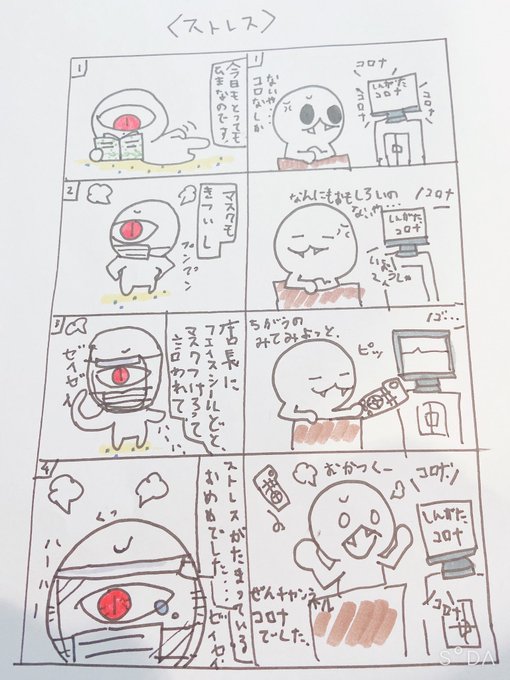 〈ストレス〉
1
コロナ
しんがた
コロナ
コロナ
コロナ
ないや…
コロなしか
なんにもおもしろいの
ないや…
コロナ
しんがた
コロナ
ちがうの
みてみよっと、
ピッ
ゴ…
むかつくー
コロナ
しんがた
コロナ
コロナ
ぜんチャンネル
コロナ
でした。
1
今日もとっても
ひまなのです。
2
マスクも
きついし
プンプン
3
店長に
フェイスシールドと、
マスクつけろって
言われて
ゼイゼイ
4
ストレスがたまっている
おめめでした…
ゼイゼイ
くっ
ハーハー
SODA